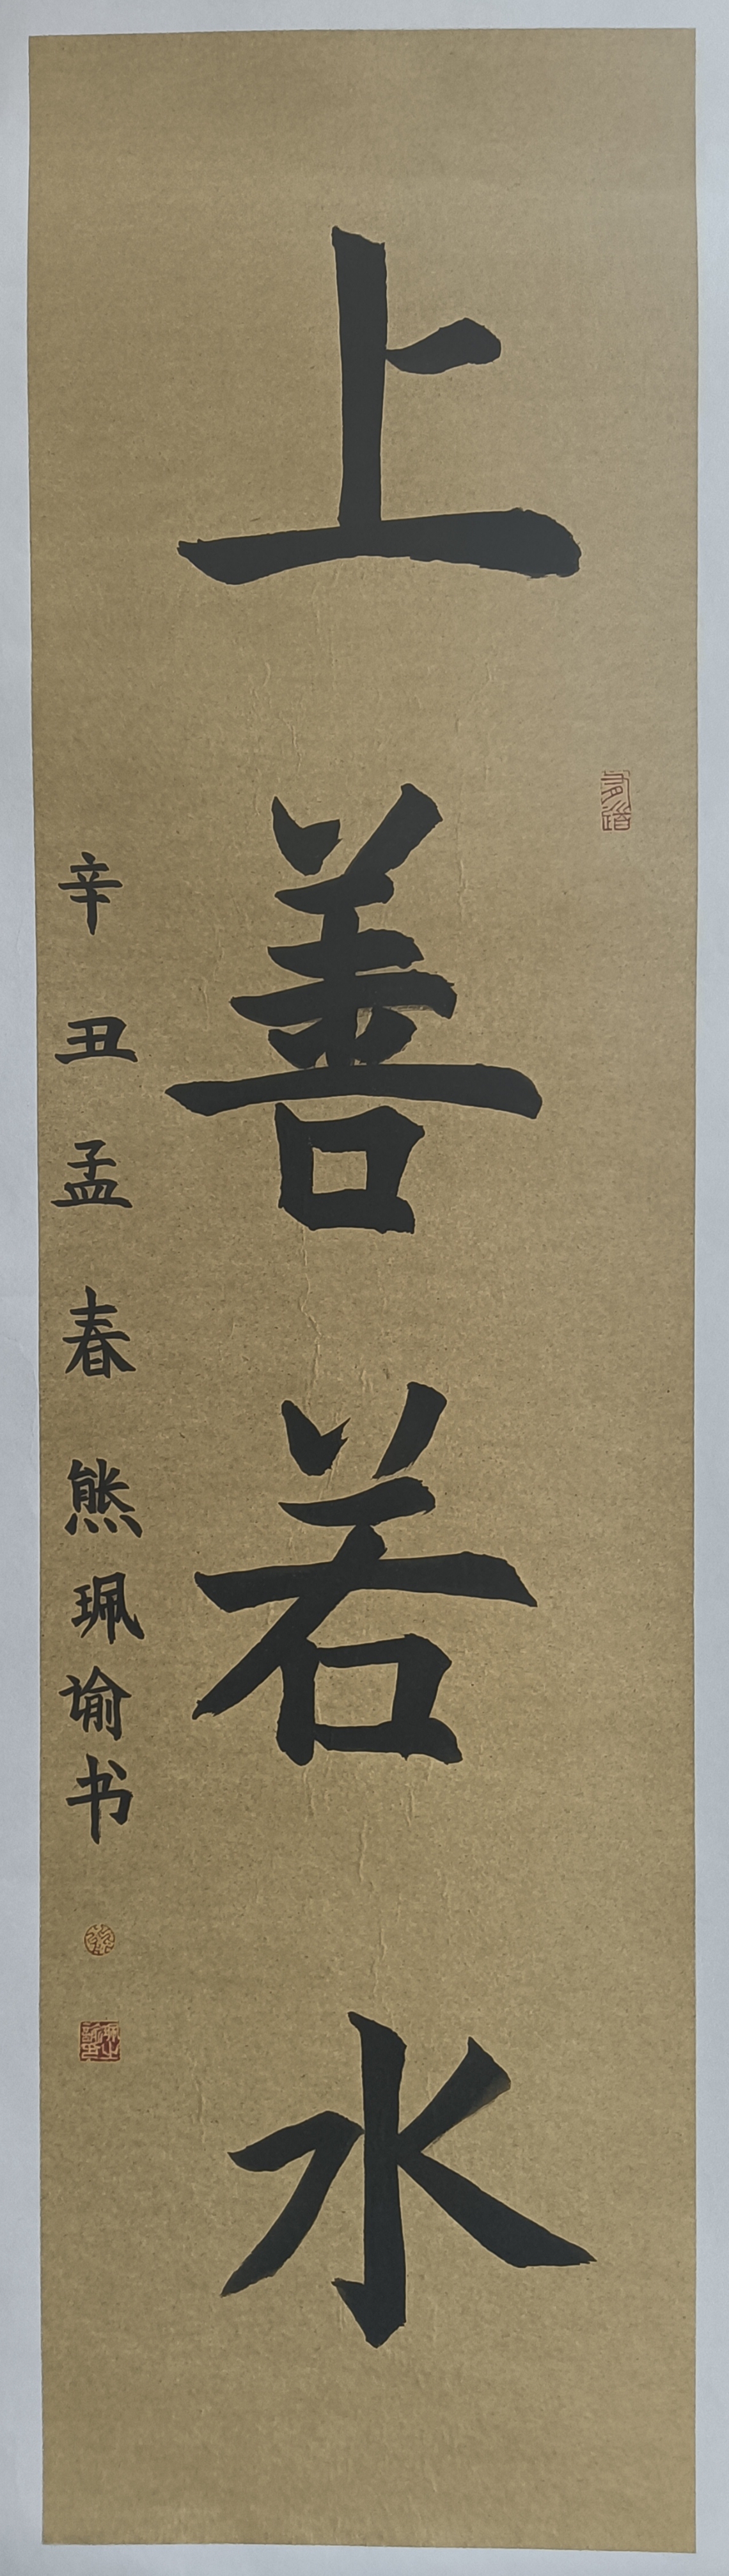 上善若水
辛丑孟春熊珮谕书